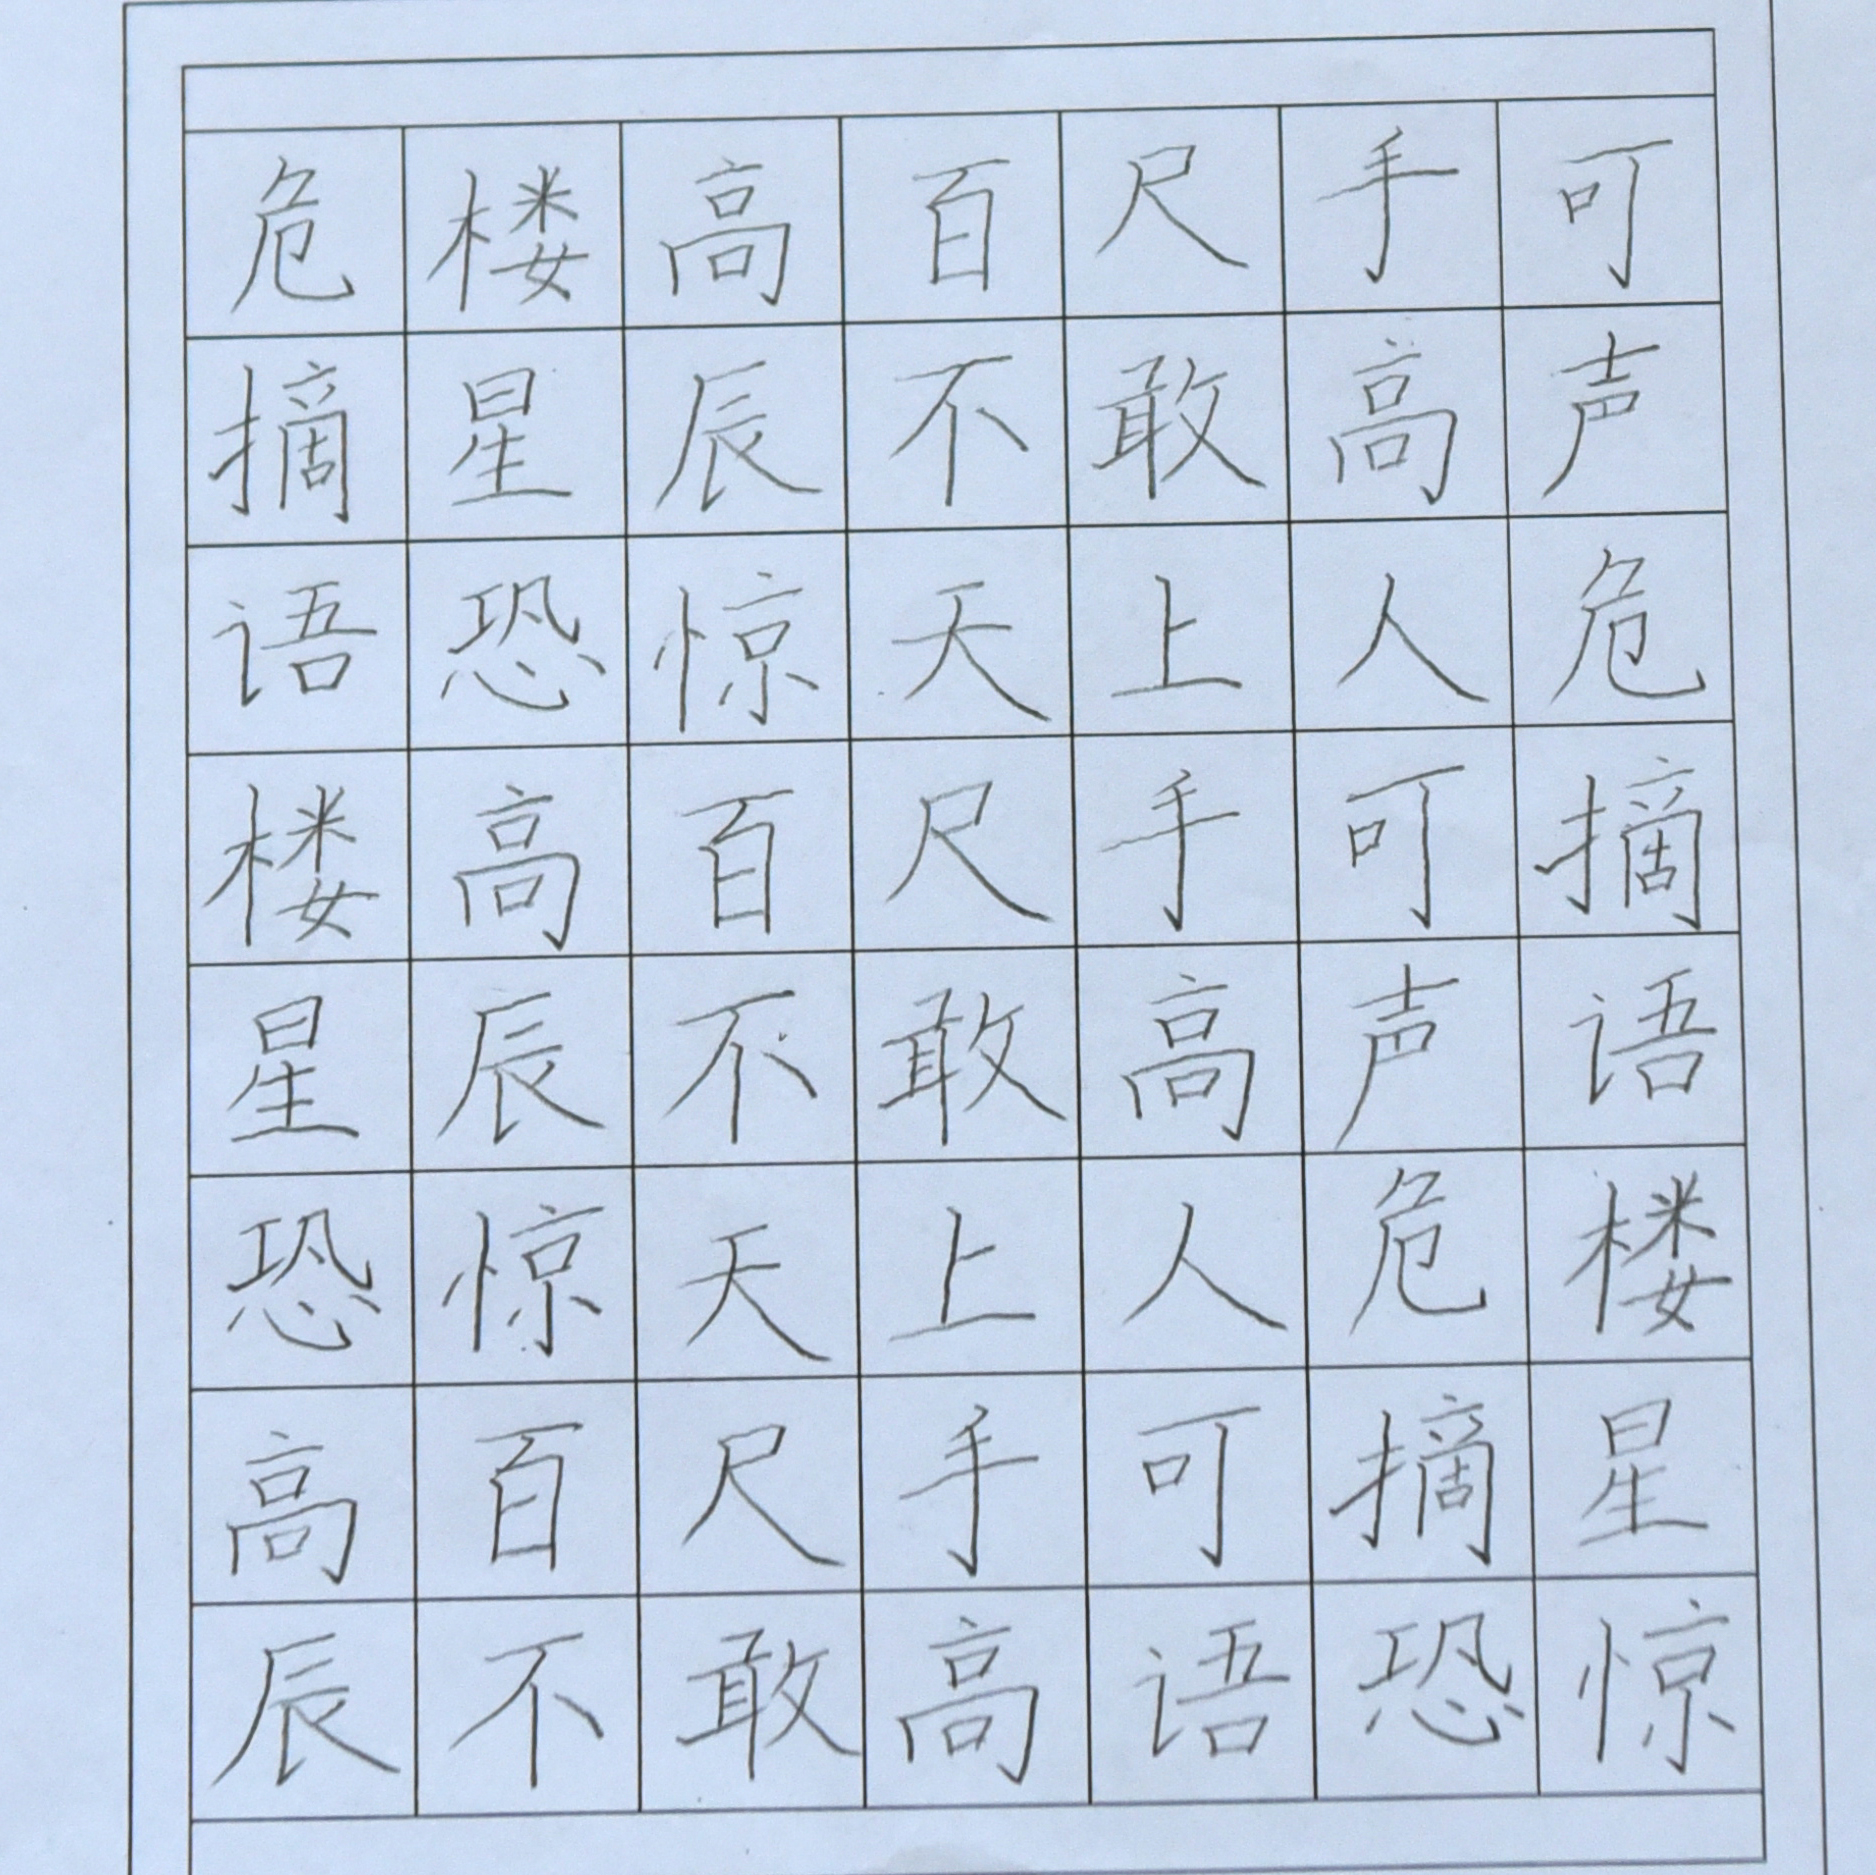 危楼高百尺手可
摘星辰不敢高声
语恐惊天上人危
楼高百尺手可摘
星辰不敢高声语
恐惊天上人危楼
高百尺手可摘星
辰不敢高语恐惊